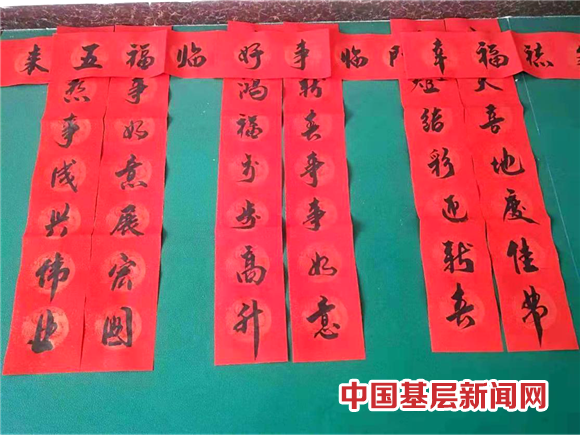 来五福临好事临门幸福禧
想事成兴伟业
事如意展宏图
鸿福步步高升
新春事事如意
灯结彩迎新春
天喜地度佳节
中国基层新闻网